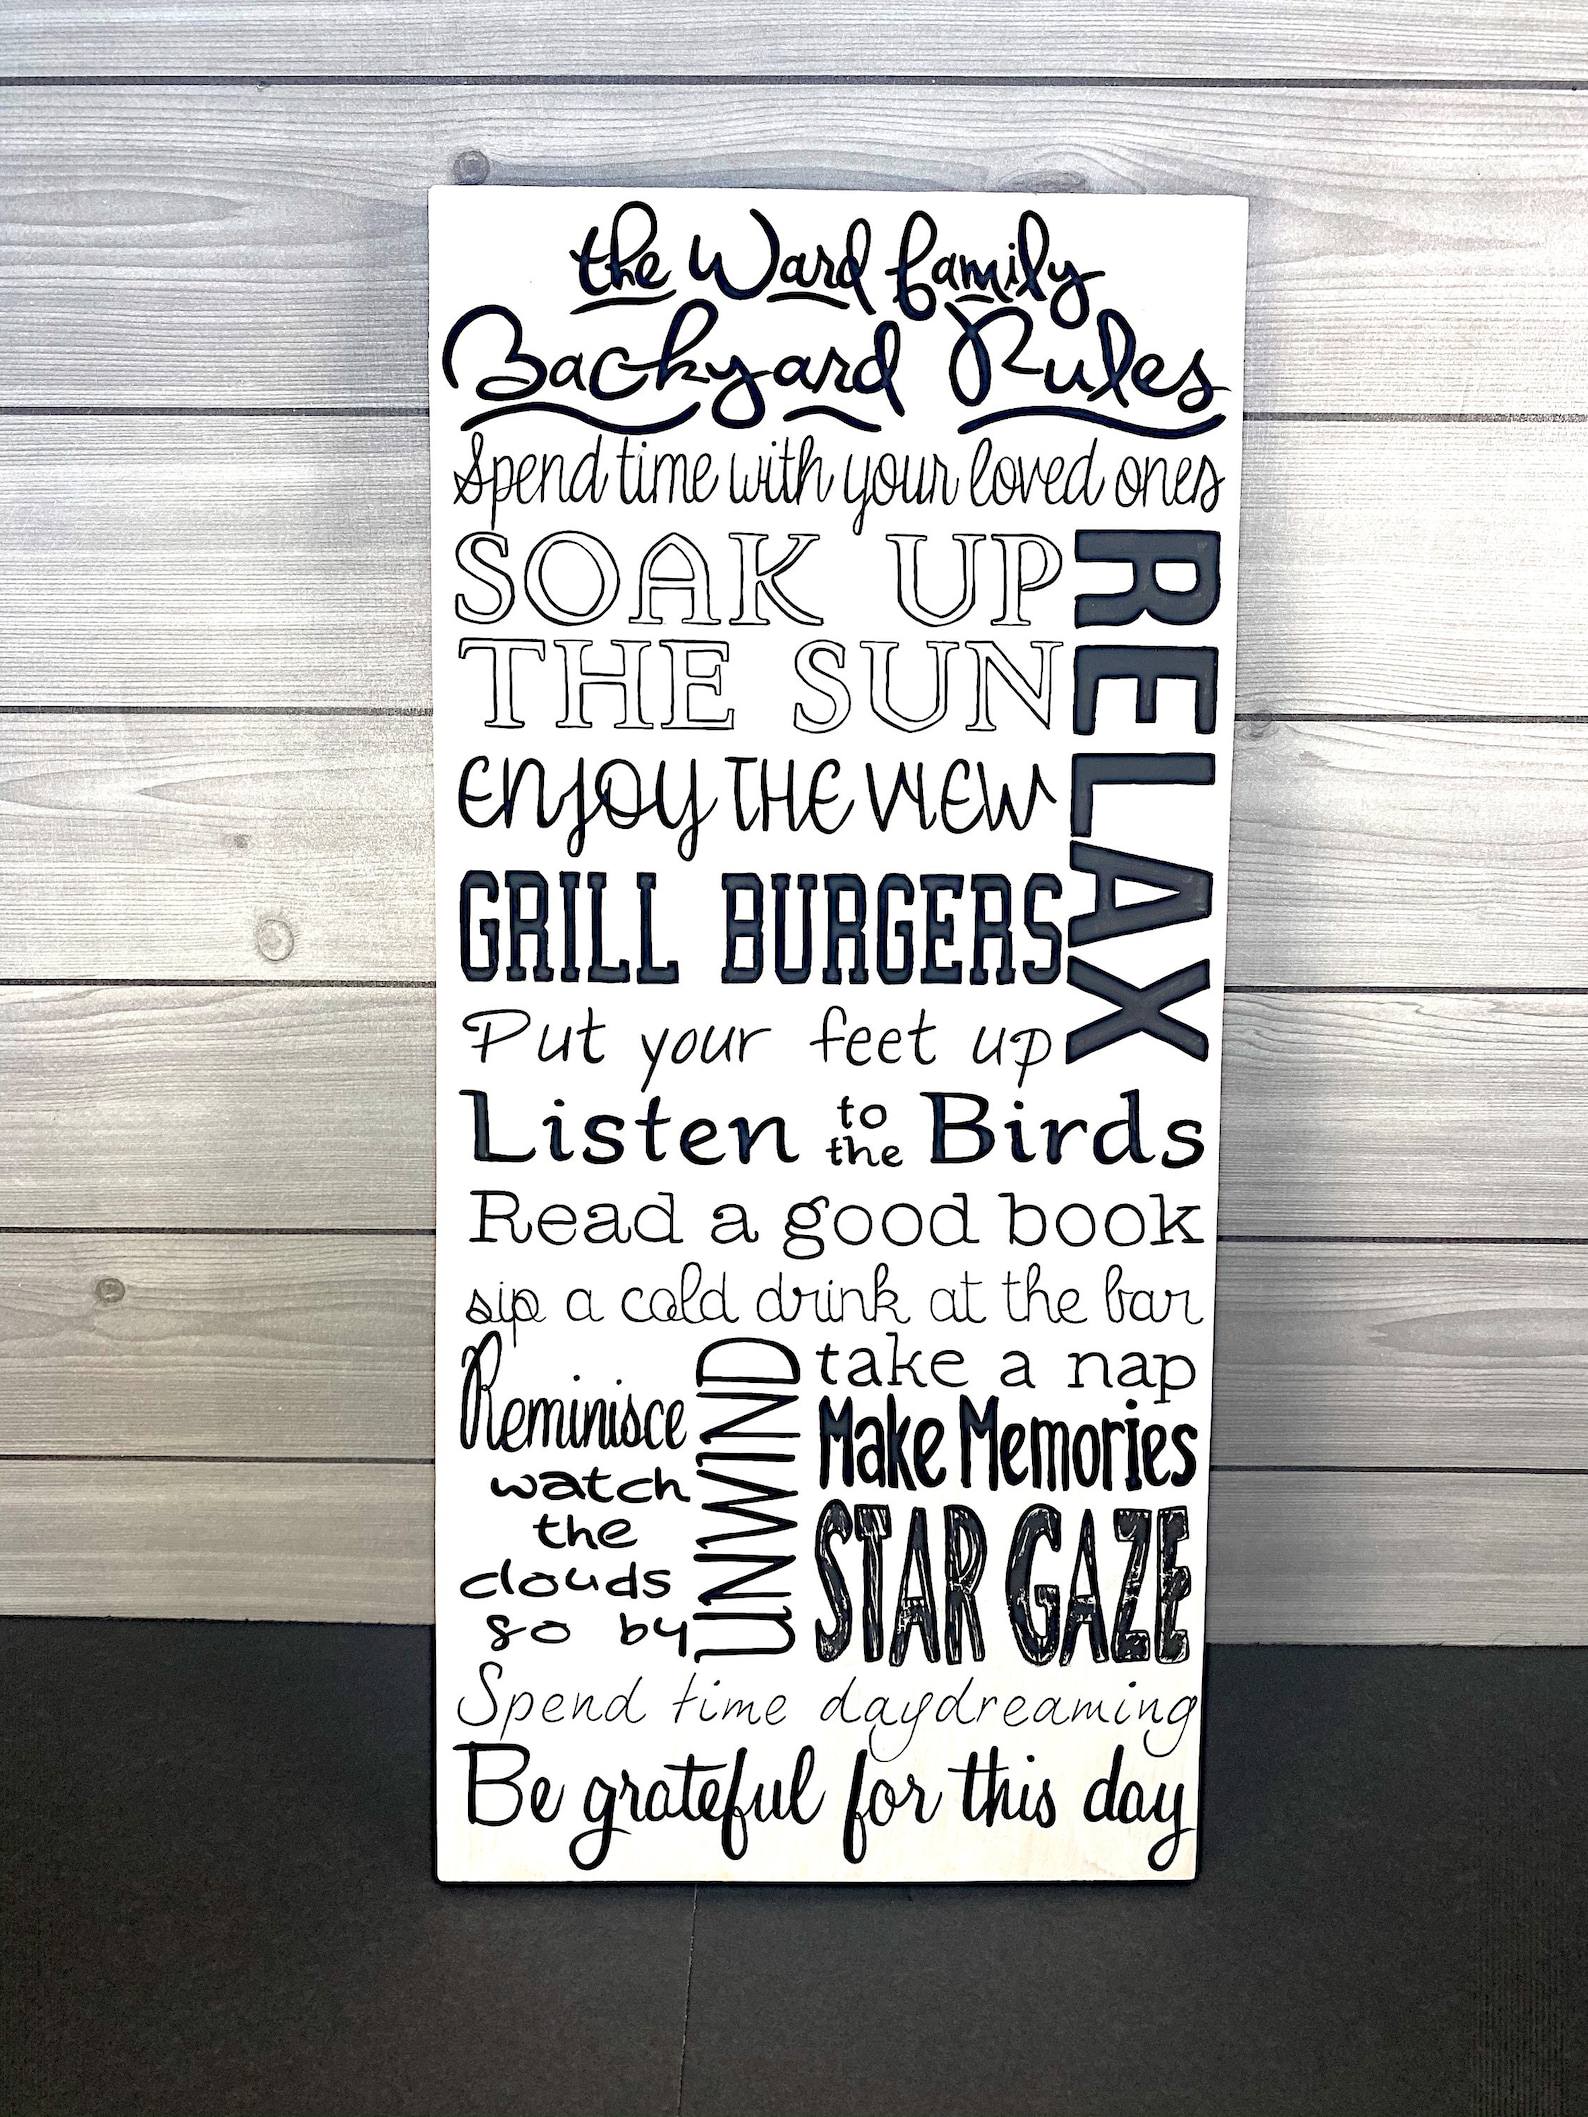 the Ward family
Backyard Rules
Spend time with your loved ones
SOAK UP
THE SUN
RELAX
enjoy THE VIEW
GRILL BURGERS
Put your feet up
Listen to the Birds
Read a good book
sip a cold drink at the bar
Reminisce
watch
the
clouds
go by
UNWIND
take a nap
Make Memories
STAR GAZE
Spend time daydreaming
Be grateful for this day